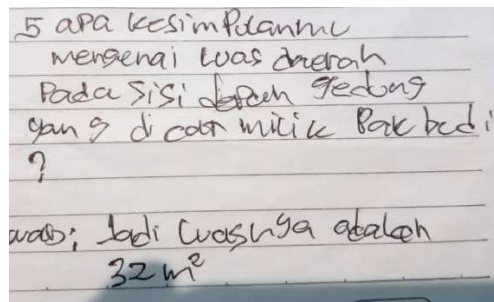 5 apa kesimpulanmu
mengenai luas daerah
Pada sisi depan gedung
yang di cat milik Pak budi
?
wab: Jadi luasnya adalah
32 m²